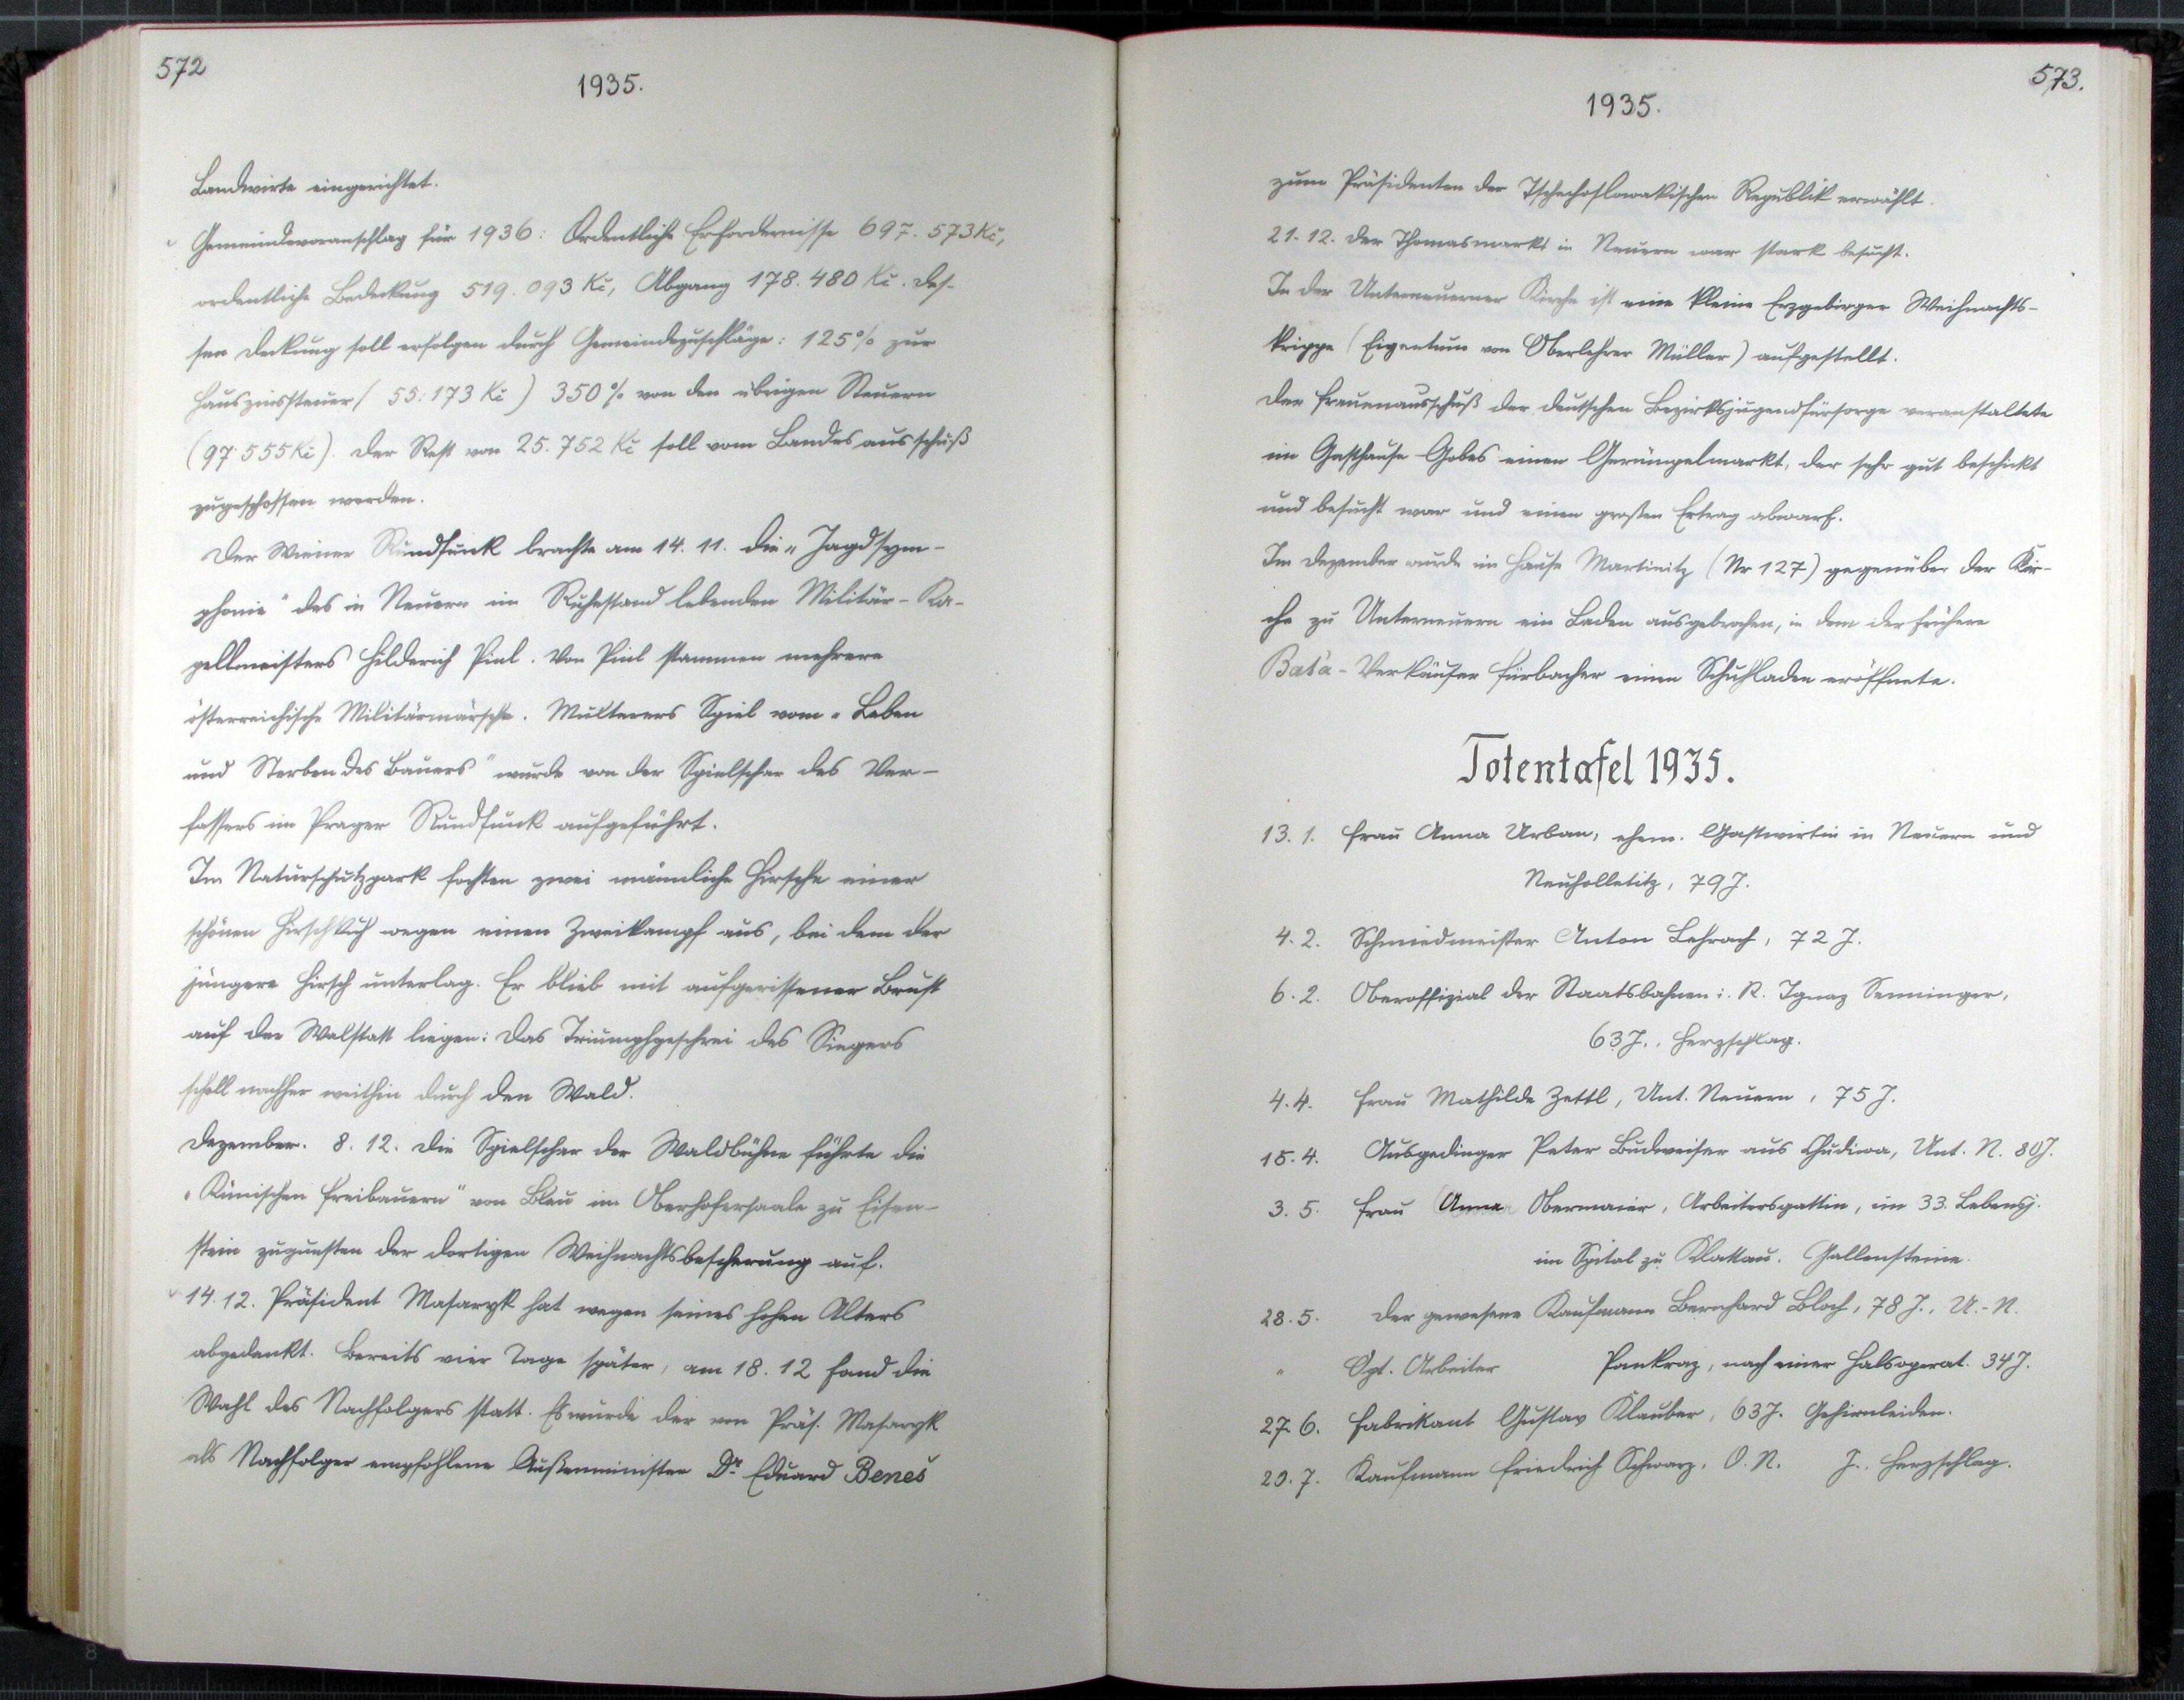 572
1935.
Landwirte eingerichtet.
Gemeindevoranschlag für 1936: Ordentliche Erfordernisse 697.573 Kč,
ordentliche Bedeckung 519.093 Kč, Abgang 178.480 Kč. Des-
sen Deckung soll erfolgen durch Gemeindezuschläge: 125% zur
Hauszinssteuer (55.173 Kč) 350% von den übrigen Steuern
(97.555 Kč). Der Rest von 25.752 Kč soll vom Landesausschuß
zugeschossen werden.
Der Wiener Rundfunk brachte am 14.11. die „Jagdsym-
phonie" des in Neuern im Ruhestand lebenden Militär-Ka-
pellmeisters Hilderich Pinl. Von Pinl stammen mehrere
österreichische Militärmärsche. Multerers Spiel vom „Leben
und Sterben des Bauers" wurde von der Spielschar des Ver-
fassers im Prager Rundfunk aufgeführt.
Im Naturschutzpark fochten zwei männliche Hirsche einer
schönen Hirschkuh wegen einen Zweikampf aus, bei dem der
jüngere Hirsch unterlag. Er blieb mit aufgerissener Brust
auf der Walstatt liegen: Das Triumphgeschrei des Siegers
scholl nachher weithin durch den Wald.
Dezember. 8.12. Die Spielschar der Waldbühne führte die
„Künischen Freibauern" von Blau im Oberhofersaale zu Eisen-
stein zugunsten der dortigen Weihnachtsbescherung auf.
14.12. Präsident Masaryk hat wegen seines hohen Alters
abgedankt. Bereits vier Tage später, am 18.12 fand die
Wahl des Nachfolgers statt. Es wurde der von Präs. Masaryk
als Nachfolger empfohlene Außenminister Dr Eduard Beneš
573.
1935.
zum Präsidenten der Tschechoslowakischen Republik erwählt.
21.12. Der Thomasmarkt in Neuern war stark besucht.
In der Unterneuerner Kirche ist eine kleine Erzgebirger Weihnachts-
krippe (Eigentum von Oberlehrer Müller) aufgestellt.
Der Frauenausschuß der deutschen Bezirksjugendfürsorge veranstaltete
im Gasthause Gobes einen Gerümpelmarkt, der sehr gut beschickt
und besucht war und einen großen Ertrag abwarf.
Im Dezember wurde im Hause Martinitz (Nr 127) gegenüber der Kir-
che zu Unterneuern ein Laden ausgebrochen, in dem der frühere
Bat'a-Verkäufer Fürbacher einen Schuhladen eröffnete.
Totentafel 1935.
13.1. Frau Anna Urban, ehem. Gastwirtin in Neuern und
Neuholletitz, 79 J.
4.2. Schmiedmeister Anton Lehrach, 72 J.
6.2. Oberoffizial der Staatsbahnen i. R. Ignaz Senninger,
63 J., Herzschlag.
4.4. Frau Mathilde Zettl, Unt. Neuern, 75 J.
15.4. Ausgedinger Peter Budweiser aus Chudiwa, Unt. N. 80 J.
3.5. Frau Anna Obermaier, Arbeitersgattin, im 33. Lebensj.
im Spital zu Klattau. Gallensteine.
28.5. Der gewesene Kaufmann Bernhard Bloch, 78 J., U.-N.
" Opt. Arbeiter Pankraz, nach einer Halsoperat. 34 J.
27.6. Fabrikant Gustav Klauber, 63 J. Gehirnleiden.
20.7. Kaufmann Friedrich Schwarz, O. N. J., Herzschlag.